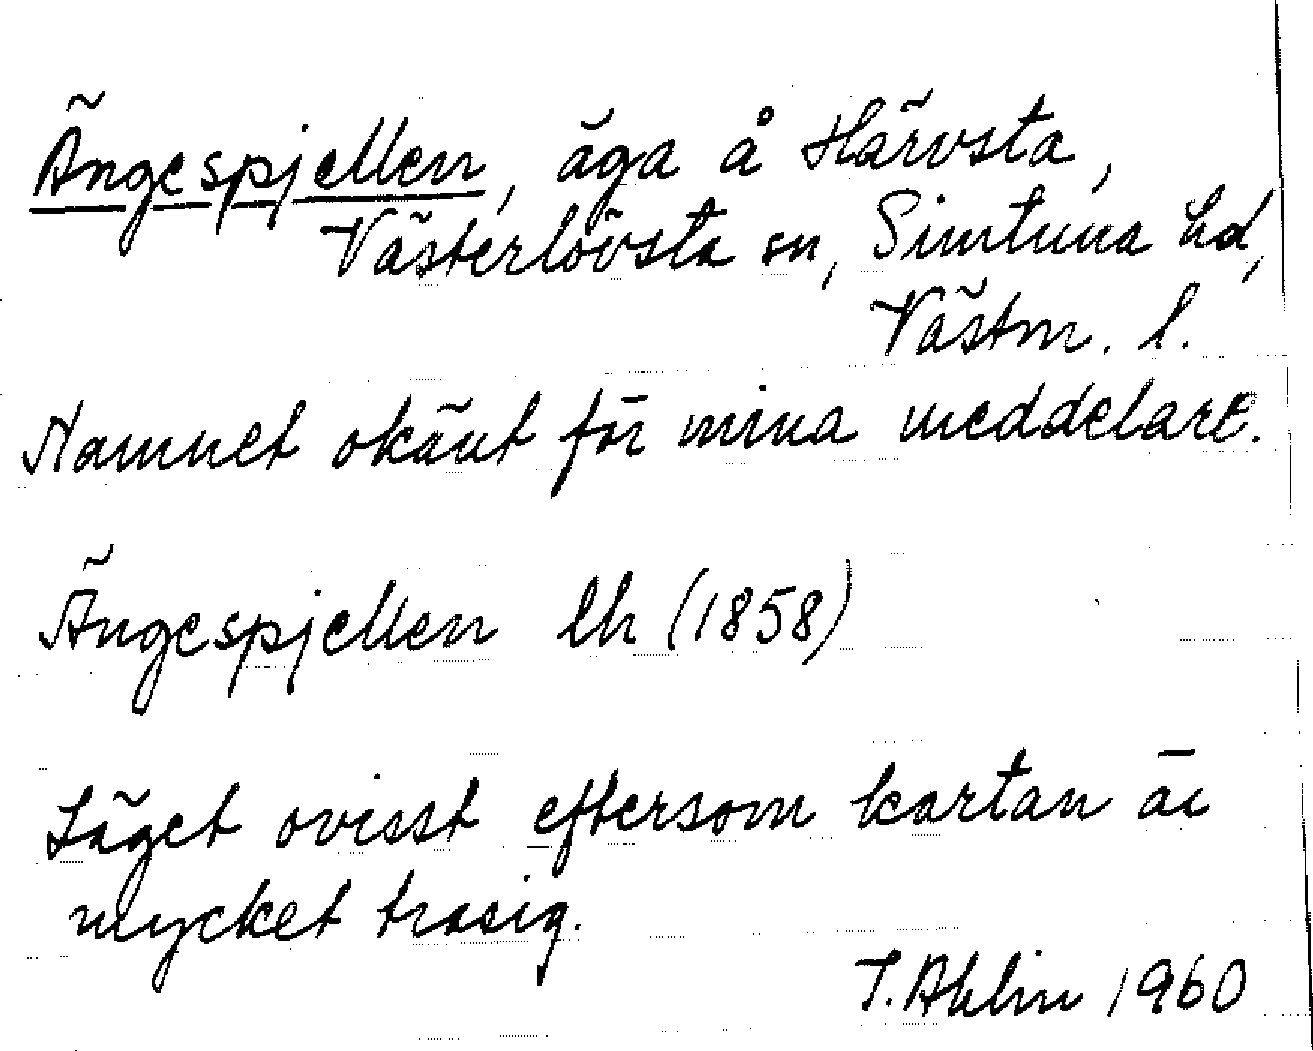 Ängespjellen, äga å Härvsta,
Västerlövsta sn, Simtuna hd,
Västm. l.
Namnet okänt för mina meddelare.
Ängespjellen lh (1858)
Läget ovisst eftersom kartan är
mycket trasig.
T. Ahlin 1960